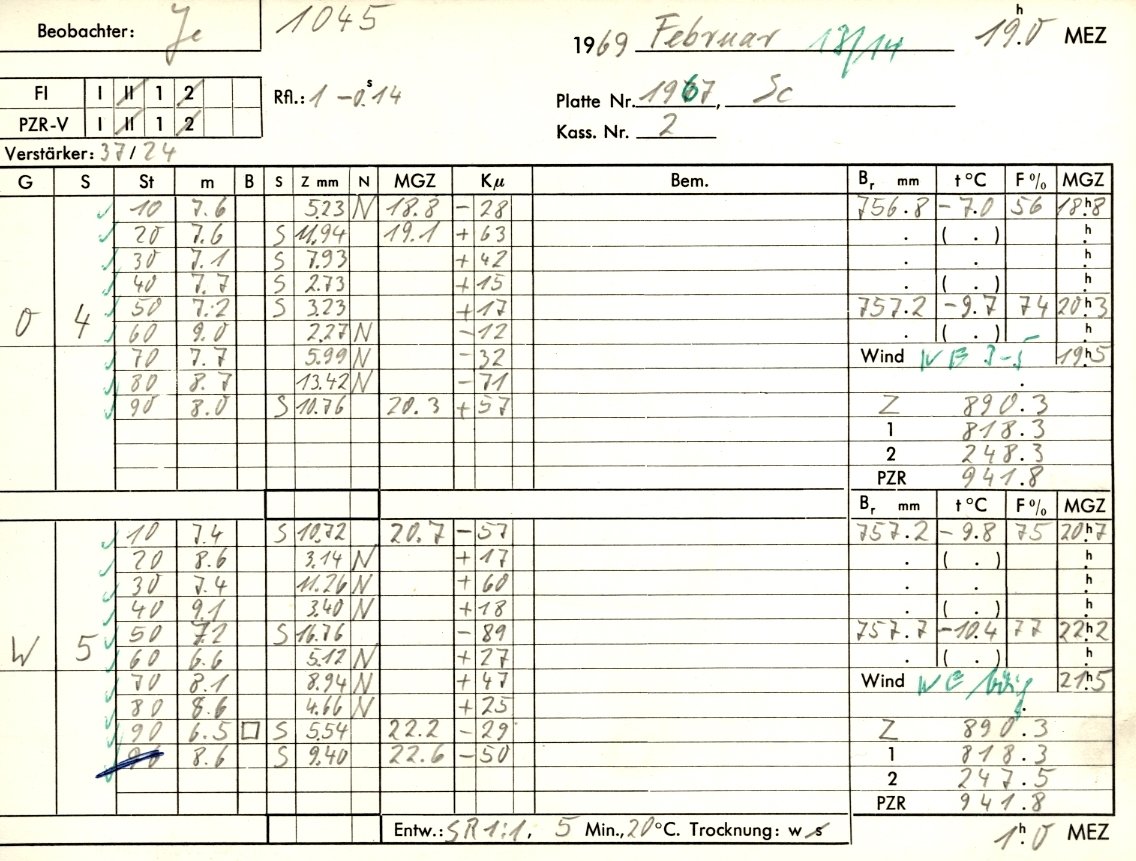 Beobachter: Je 1045 1969 Februar 13/14 19h.0 MEZ
FI I II 1 2 Rfl.: 1 -0s.14 Platte Nr. 1967, Sc
PZR-V I II 1 2 Kass. Nr. 2
Verstärker: 37/24
G S St m B S Z mm N MGZ Kµ Bem. Br mm t °C F% MGZ
10 7.6 5.23 N 18.8 - 28 756.8 - 7.0 56 18h.8
20 7.6 S 11.94 19.1 + 63 . ( . ) h.
30 7.1 S 7.93 + 42 . . h.
40 7.7 S 2.73 + 15 . ( . ) h.
50 7.2 S 3.23 + 17 757.2 - 9.7 74 20h.3
O 4 60 9.0 2.27 N - 12 . ( . ) h.
70 7.7 5.99 N - 32 Wind 19h.5
80 8.7 13.42 N - 71 .
90 8.0 S 10.76 20.3 + 57 Z 890.3
1 818.3
2 248.3
PZR 941.8
Br mm t °C F% MGZ
10 7.4 S 10.72 20.7 - 57 757.2 - 9.8 75 20h.7
20 8.6 3.14 N + 17 . ( . ) h.
30 7.4 11.26 N + 60 . . h.
40 9.1 3.40 N + 18 . ( . ) h.
50 7.2 S 16.76 - 89 757.7 -10.4 77 22h.2
W 5 60 6.6 5.12 N + 27 . ( . ) h.
70 8.1 8.94 N + 47 Wind 21h.5
80 8.6 4.66 N + 25 .
90 6.5 □ S 5.54 22.2 - 29 Z 890.3
8.6 S 9.40 22.6 - 50 1 818.3
2 247.5
PZR 941.8
Entw.: SR 1:1, 5 Min., 20 °C. Trocknung: w s 1h.0 MEZ